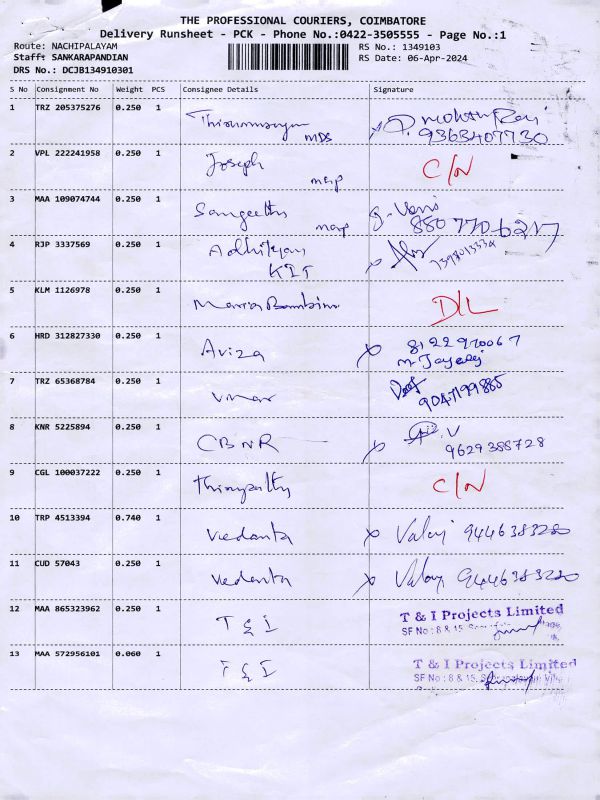 THE PROFESSIONAL COURIERS, COIMBATORE
Delivery Runsheet - PCK - Phone No.:0422-3505555 - Page No.:1
Route: NACHIPALAYAM
RS No.: 1349103
Staff: SANKARAPANDIAN
RS Date: 06-Apr-2024
DRS No.: DCJB134910301
S No Consignment No Weight PCS Consignee Details Signature
1 TRZ 205375276 0.250 1
MDS 9363407730
2 VPL 222241958 0.250 1 Joseph C/N
3 MAA 109074744 0.250 1 Sangeetha
4 RJP 3337569 0.250 1
KIT
5 KLM 1126978 0.250 1 D/L
6 HRD 312827330 0.250 1 Aviza 8122970067
7 TRZ 65368784 0.250 1 9047199885
8 KNR 5225894 0.250 1 CBNR V
9629388728
9 CGL 100037222 0.250 1 C/N
10 TRP 4513394 0.740 1 Vedanta 9446383280
11 CUD 57043 0.250 1 Vedanta 9446383280
12 MAA 865323962 0.250 1 T & I T & I Projects Limited
SF No : 8 & 15,
13 MAA 572956101 0.060 1 T & I T & I Projects Limited
SF No : 8 & 15,